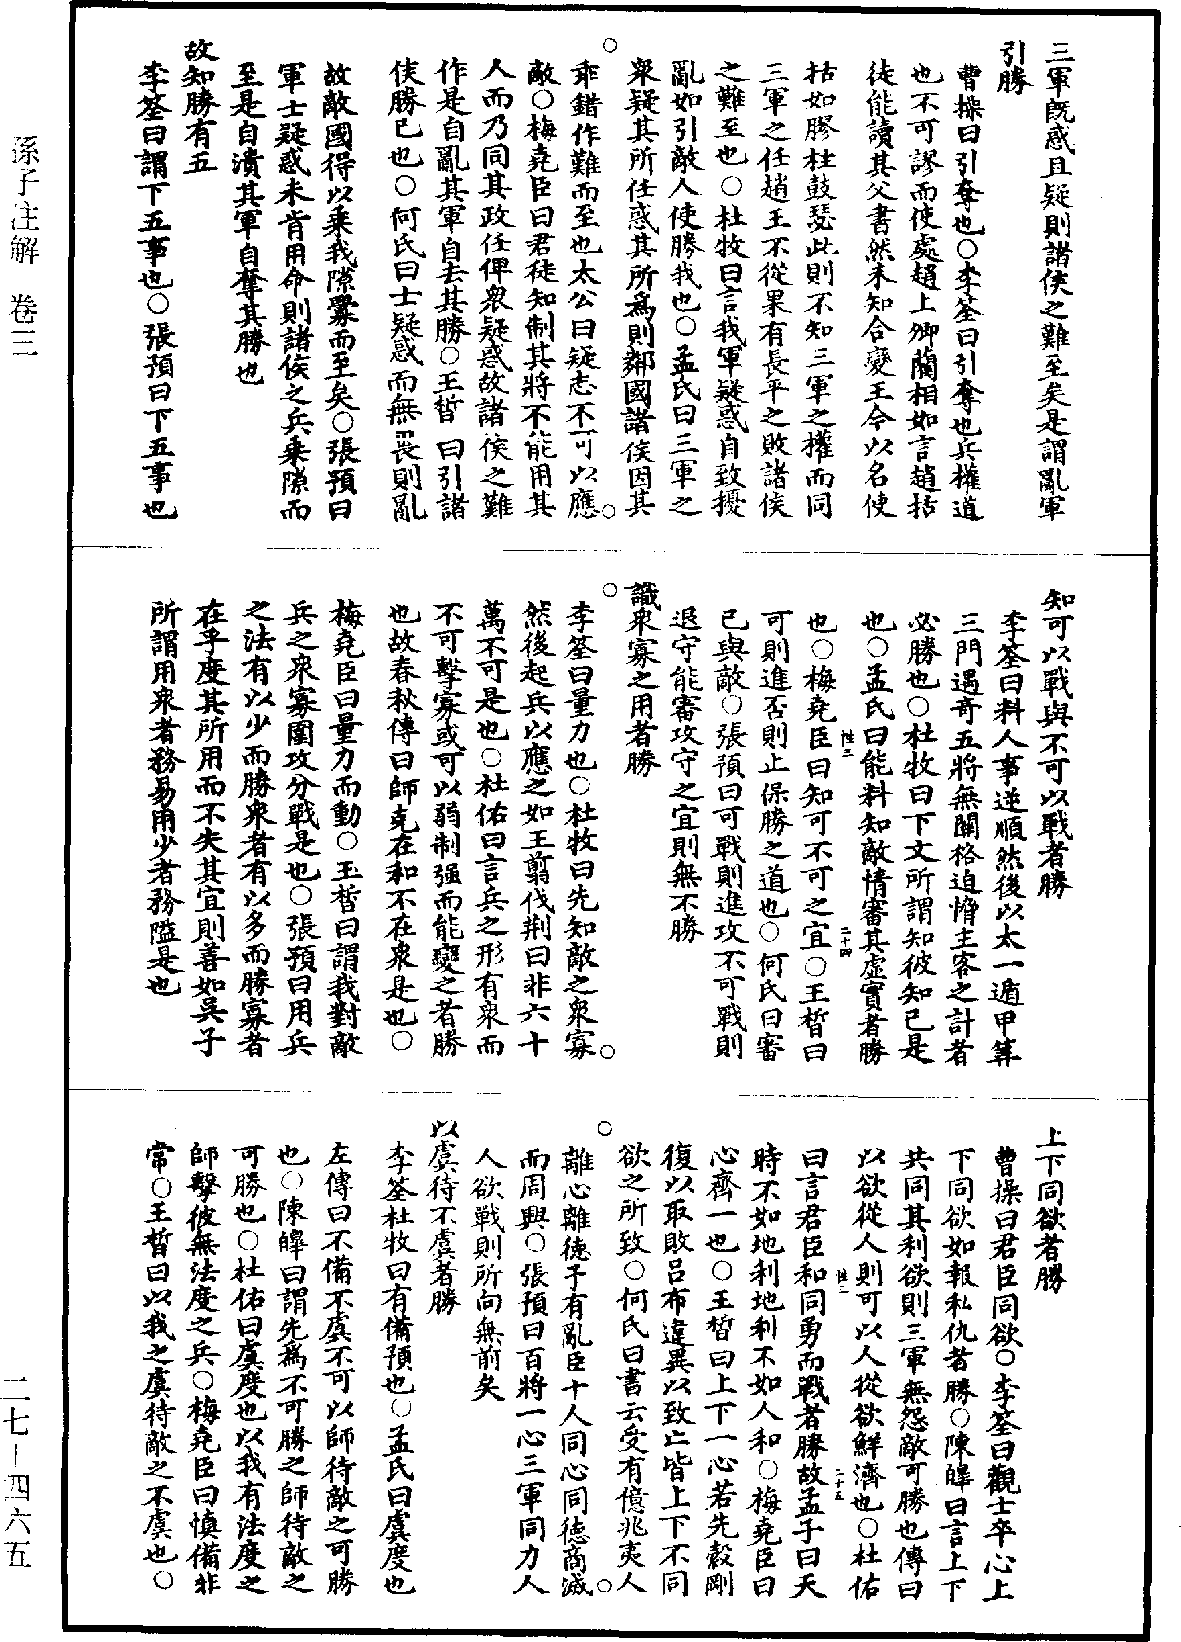 三軍旣惑且疑則諸侯之難至矣是謂亂軍
引勝
曹操曰引奪也○李筌曰引奪也兵權道
也不可謬而使處趙上卿藺相如言趙括
徒能讀其父書然未知合變王今以名使
括如膠柱鼓瑟此則不知三軍之權而同
三軍之任趙王不從果有長平之敗諸侯
之難至也○杜牧曰言我軍疑惑自致擾
亂如引敵人使勝我也○孟氏曰三軍之
衆疑其所任惑其所爲則鄰國諸侯因其
乖錯作難而至也太公曰疑志不可以應
敵○梅堯臣曰君徒知制其將不能用其
人而乃同其政任俾衆疑惑故諸侯之難
作是自亂其軍自去其勝○王晳曰引諸
侯勝已也○何氏曰士疑惑而無畏則亂
故敵國得以乘我隙釁而至矣○張預曰
軍士疑惑未肯用命則諸侯之兵乘隙而
至是自潰其軍自奪其勝也
故知勝有五
李筌曰謂下五事也○張預曰下五事也
知可以戰與不可以戰者勝
李筌曰料人事逆順然後以太一遁甲筭
三門遇奇五將無關格迫脅主客之計者
必勝也○杜牧曰下文所謂知彼知己是
也○孟氏曰能料知敵情審其虛實者勝
也○梅堯臣曰知可不可之宜○王晳曰
可則進否則止保勝之道也○何氏曰審
己與敵○張預曰可戰則進攻不可戰則
退守能審攻守之宜則無不勝
識衆寡之用者勝
李筌曰量力也○杜牧曰先知敵之衆寡
然後起兵以應之如王翦伐荆曰非六十
萬不可是也○杜佑曰言兵之形有衆而
不可擊寡或可以弱制强而能變之者勝
也故春秋傳曰師克在和不在衆是也○
梅堯臣曰量力而動○王晳曰謂我對敵
兵之衆寡圍攻分戰是也○張預曰用兵
之法有以少而勝衆者有以多而勝寡者
在乎度其所用而不失其宜則善如吳子
所謂用衆者務易用少者務隘是也
上下同欲者勝
曹操曰君臣同欲○李筌曰觀士卒心上
下同欲如報私仇者勝○陳皥曰言上下
共同其利欲則三軍無怨敵可勝也傳曰
以欲從人則可以人從欲鮮濟也○杜佑
曰言君臣和同勇而戰者勝故孟子曰天
時不如地利地利不如人和○梅堯臣曰
心齊一也○王晳曰上下一心若先縠剛
復以取敗吕布違異以致亡皆上下不同
欲之所致○何氏曰書云受有億兆夷人
離心離德予有亂臣十人同心同德商滅
而周興○張預曰百將一心三軍同力人
人欲戰則所向無前矣
以虞待不虞者勝
李筌杜牧曰有備預也○孟氏曰虞度也
左傳曰不備不虞不可以師待敵之可勝
也○陳皥曰謂先爲不可勝之師待敵之
可勝也○杜佑曰虞度也以我有法度之
師擊彼無法度之兵○梅堯臣曰慎備非
常○王晳曰以我之虞待敵之不虞也○
孫子注解　卷三
二七－四六五